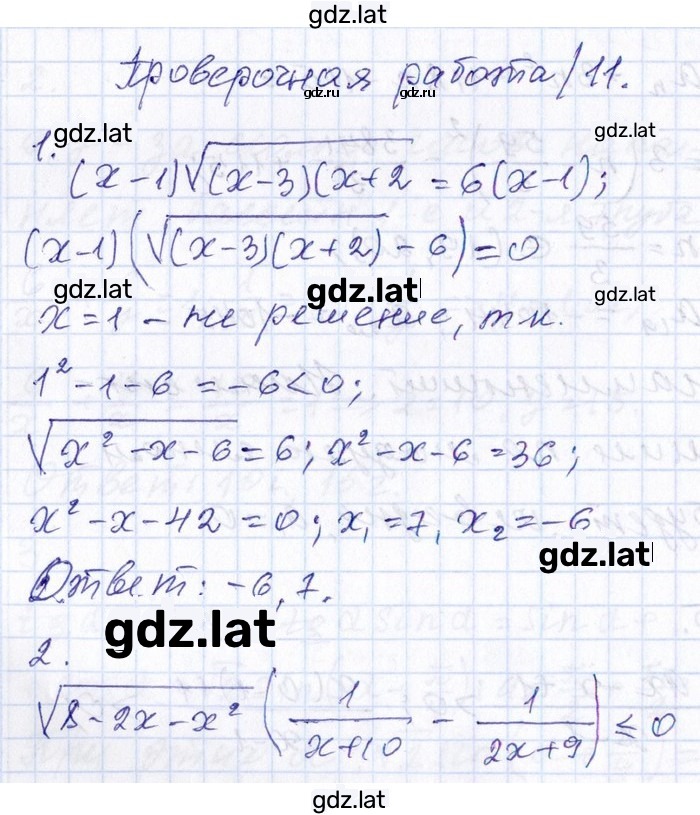 gdz.lat
Проверочная работа/11.
gdz.lat gdz.lat
gdz.lat gdz.lat
1.
(x-1)√(x-3)(x+2 = 6(x-1);
(x-1)(√(x-3)(x+2) - 6) = 0
gdz.lat gdz.lat gdz.lat
x = 1 - не решение, т.к.
1² - 1 - 6 = -6 < 0;
√x² - x - 6 = 6; x² - x - 6 = 36;
x² - x - 42 = 0; x₁ = 7, x₂ = -6
gdz.lat
Ответ: -6, 7.
gdz.lat
2.
√8 - 2x - x² (1/(x+10) - 1/(2x+9)) ≤ 0
gdz.lat